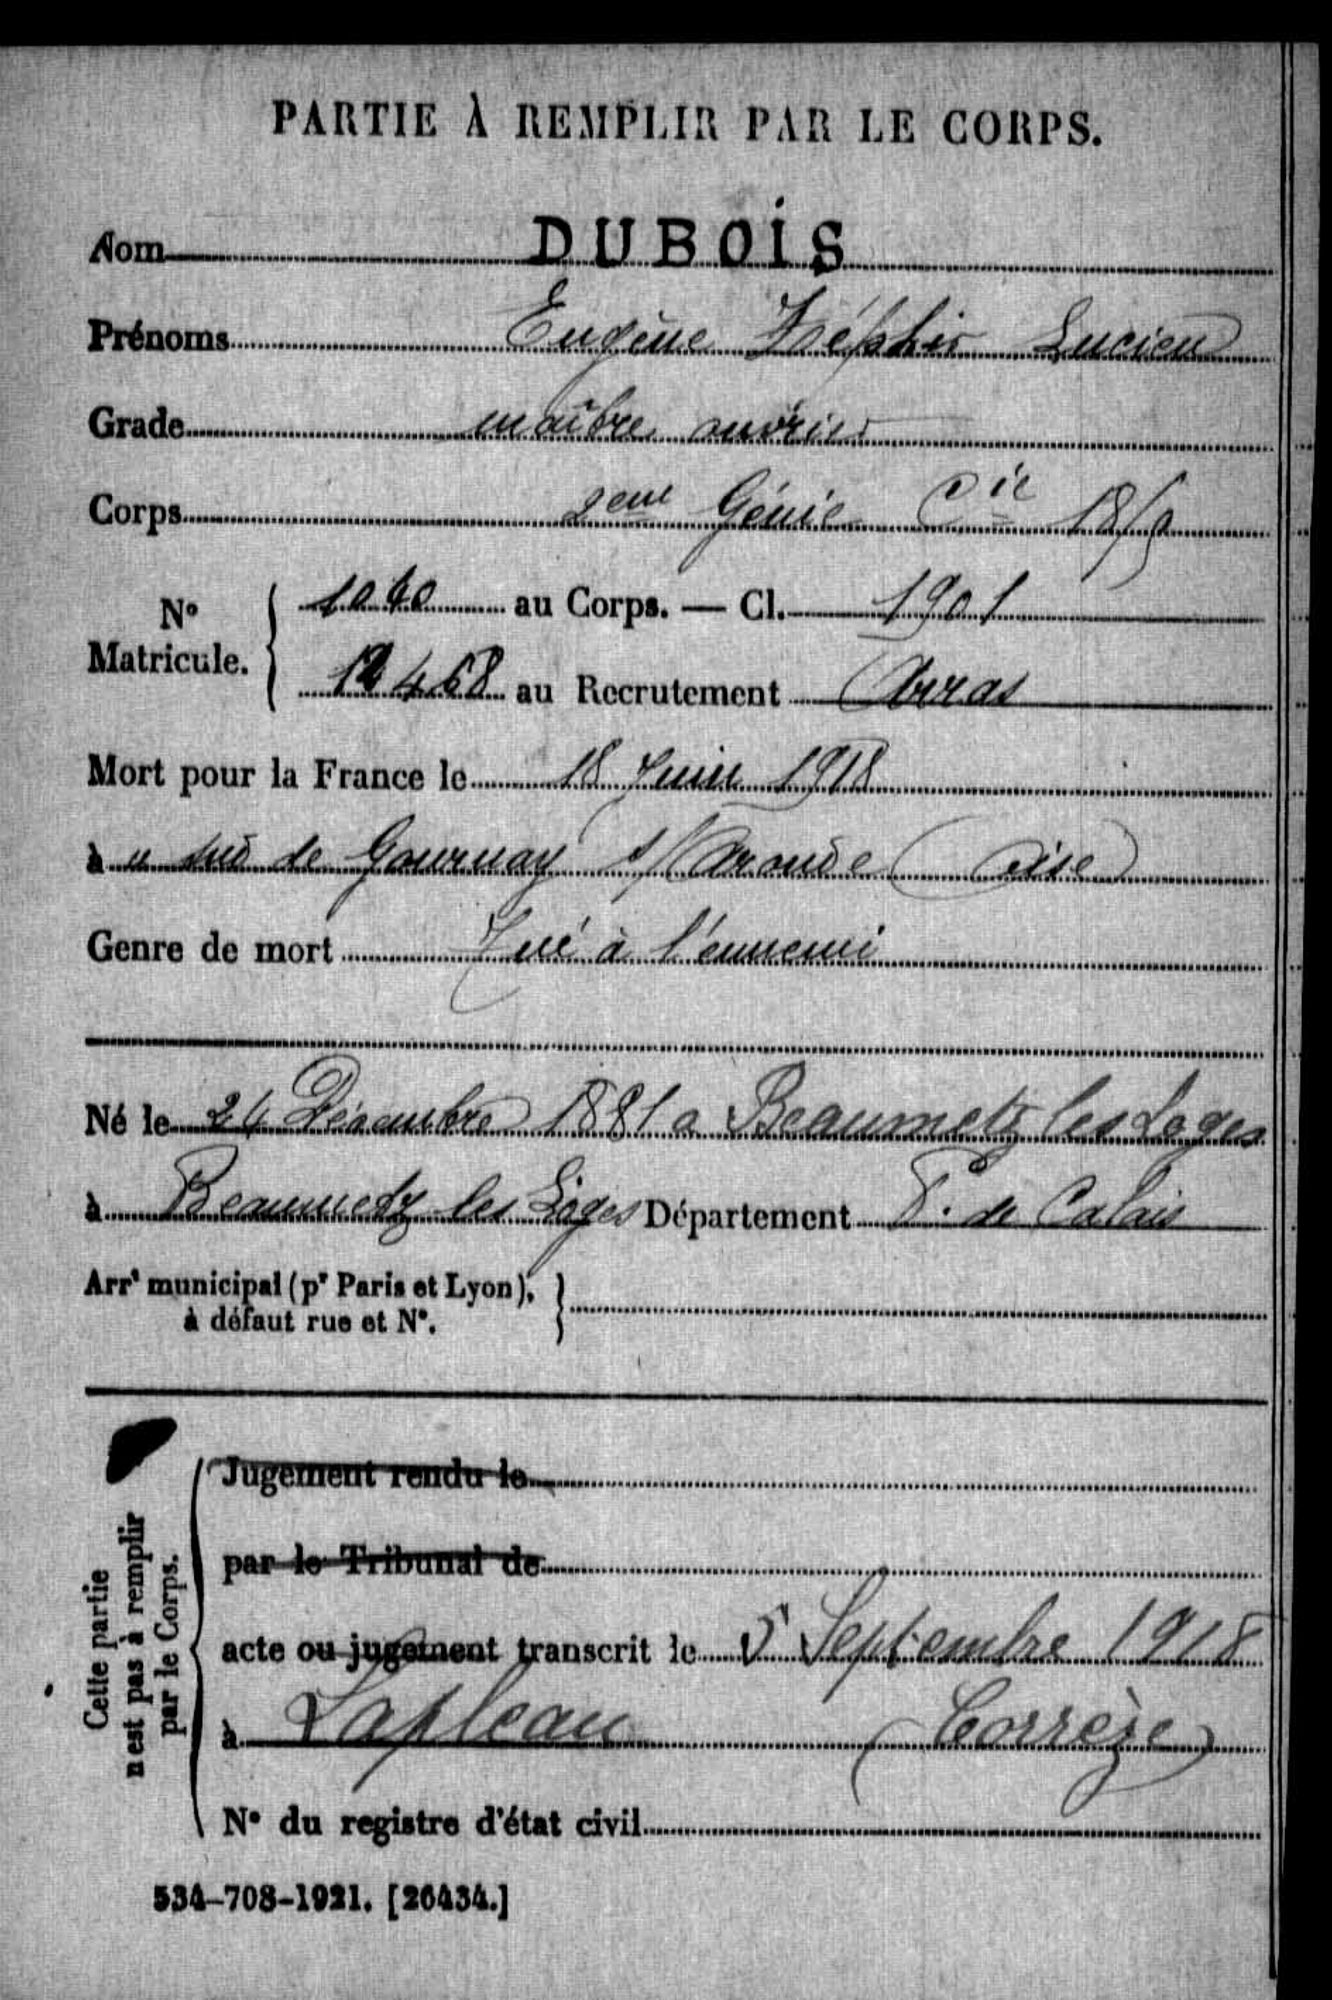 PARTIE À REMPLIR PAR LE CORPS.
Nom DUBOIS
Prénoms Eugène Zéphir Lucien
Grade maître ouvrier
Corps 2eme Génie Cie 18/
N° Matricule. 1040 au Corps. — Cl. 1901
468 au Recrutement Arras
Mort pour la France le 18 Juin 1918
à u sud de Gournay s/ Aronde (Oise)
Genre de mort Tué à l'ennemi
Né le 24 Décembre 1881 a Beaumetz les Loges
à Beaumetz les Loges Département P. de Calais
Arrt municipal (pr Paris et Lyon),
à défaut rue et N°.
Cette partie
n'est pas à remplir
par le Corps.
Jugement rendu le
par le Tribunal de
acte ou jugement transcrit le 5 Septembre 1918
à Lapleau (Corrèze)
N° du registre d'état civil
534-708-1921. [26434.]